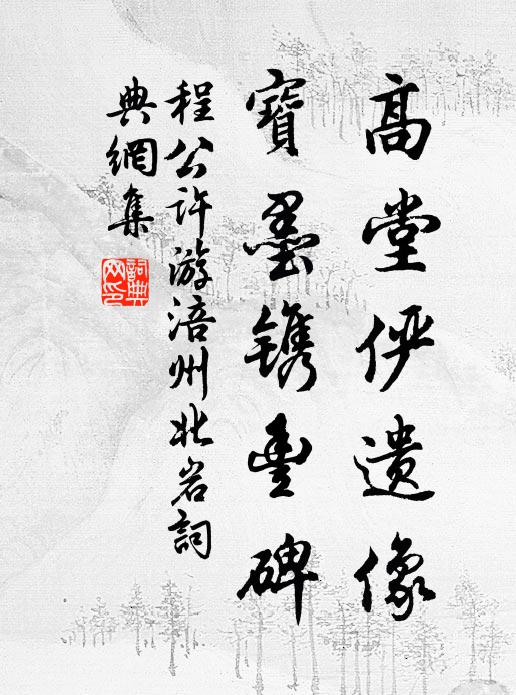 高堂俨遗像
寶墨镌豊碑
程公许游涪州北岩詞
典網集
詞典网印